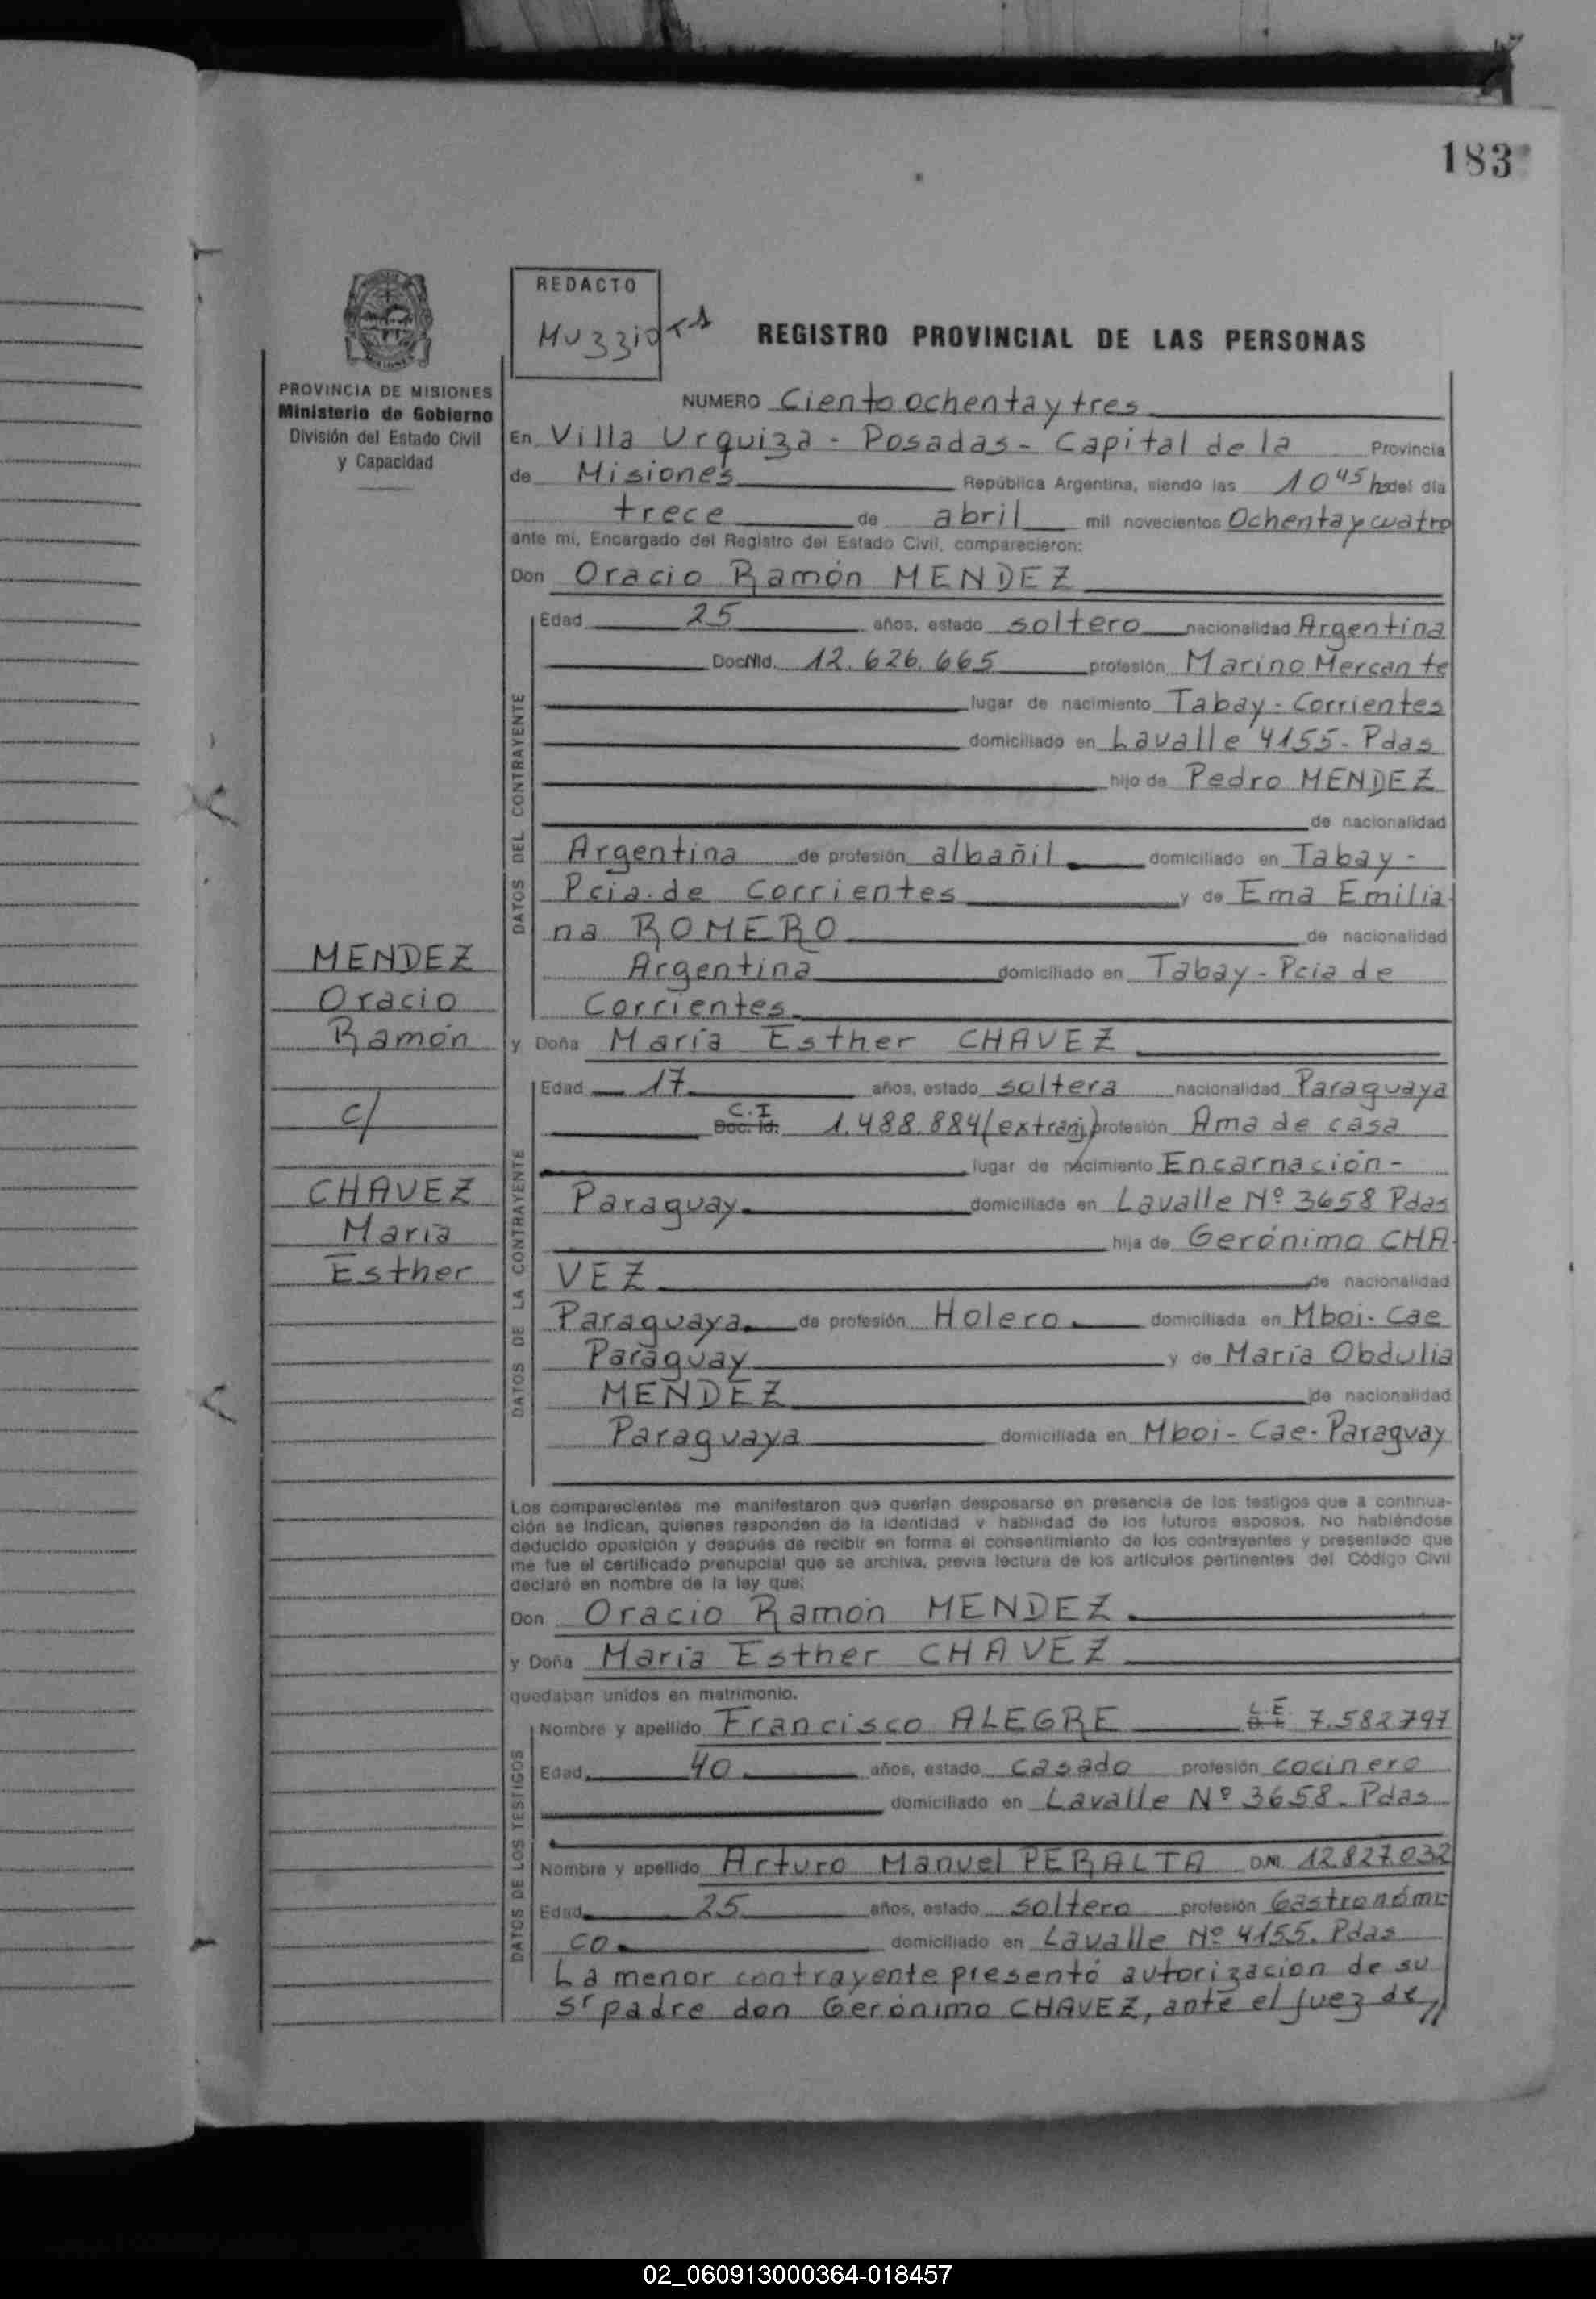 183
REDACTO
Muzzio
REGISTRO PROVINCIAL DE LAS PERSONAS
PROVINCIA DE MISIONES
Ministerio de Gobierno
División del Estado Civil
y Capacidad
NUMERO Ciento ochenta y tres
En Villa Urquiza - Posadas - Capital de la Provincia
de Misiones República Argentina, siendo las 10 45 hs del día
trece de abril mil novecientos Ochenta y cuatro
ante mi, Encargado del Registro del Estado Civil, comparecieron:
Don Oracio Ramón MENDEZ
DATOS DEL CONTRAYENTE
Edad 25 años, estado soltero nacionalidad Argentina
Doc NId. 12.626.665 profesión Marino Mercante
lugar de nacimiento Tabay - Corrientes
domiciliado en Lavalle 4155 - Pdas
hijo de Pedro MENDEZ
de nacionalidad
Argentina de profesión albañil domiciliado en Tabay -
Pcia. de Corrientes y de Ema Emilia
na ROMERO de nacionalidad
Argentina domiciliado en Tabay - Pcia de
Corrientes
MENDEZ
Oracio
Ramón
c/
CHAVEZ
Maria
Esther
y Doña María Esther CHAVEZ
DATOS DE LA CONTRAYENTE
Edad 17 años, estado soltera nacionalidad Paraguaya
C.I
Doc. Id. 1.488.884 (extranj) profesión Ama de casa
lugar de nacimiento Encarnación -
Paraguay domiciliada en Lavalle Nº 3658 Pdas
hija de Gerónimo CHA
VEZ de nacionalidad
Paraguaya de profesión Holero domiciliada en Mboi - Cae
Paraguay y de María Obdulia
MENDEZ de nacionalidad
Paraguaya domiciliada en Mboi - Cae - Paraguay
Los comparecientes me manifestaron que querían desposarse en presencia de los testigos que a continua-
ción se indican, quienes responden de la identidad y habilidad de los futuros esposos. No habiéndose
deducido oposición y después de recibir en forma el consentimiento de los contrayentes y presentado que
me fue el certificado prenupcial que se archiva, previa lectura de los artículos pertinentes del Código Civil
declaré en nombre de la ley que:
Don Oracio Ramón MENDEZ
y Doña María Esther CHAVEZ
quedaban unidos en matrimonio.
DATOS DE LOS TESTIGOS
Nombre y apellido Francisco ALEGRE L.E. 7.582797
Edad 40 años, estado casado profesión cocinero
domiciliado en Lavalle Nº 3658 - Pdas
Nombre y apellido Arturo Manuel PERALTA D.NI. 12.827.032
Edad 25 años, estado soltero profesión Gastronómi
co domiciliado en Lavalle Nº 4155. Pdas
La menor contrayente presentó autorización de su
Sr padre don Gerónimo CHAVEZ, ante el Juez de //
02_060913000364-018457